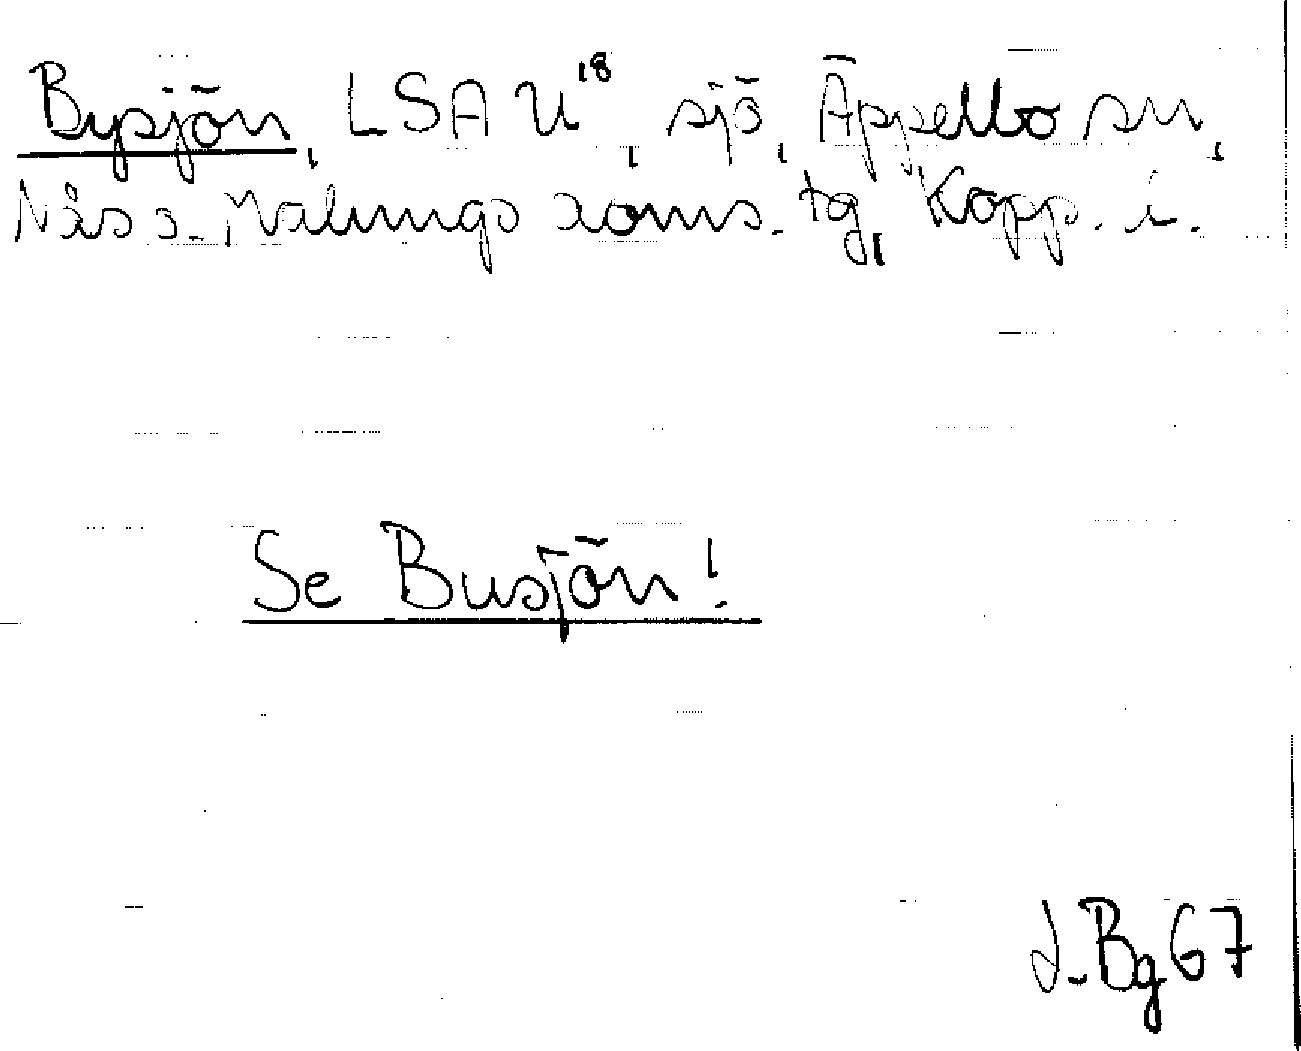 Bysjön, LSA U¹⁸, sjö, Äppelbo sn,
Nås o. Malungs doms. tg, Kopp. l.
Se Busjön!
J. Bg 67